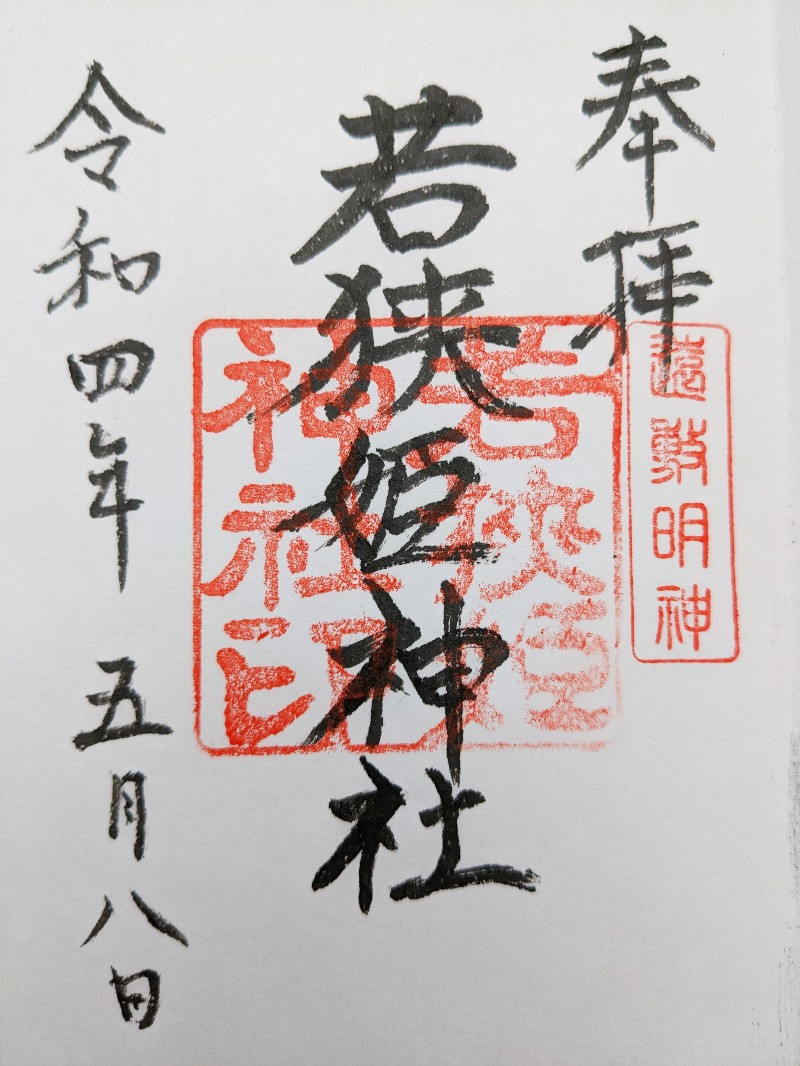 奉拝
遠敷明神
若狭姫神社
若狭姫
神社印
令和四年 五月八日